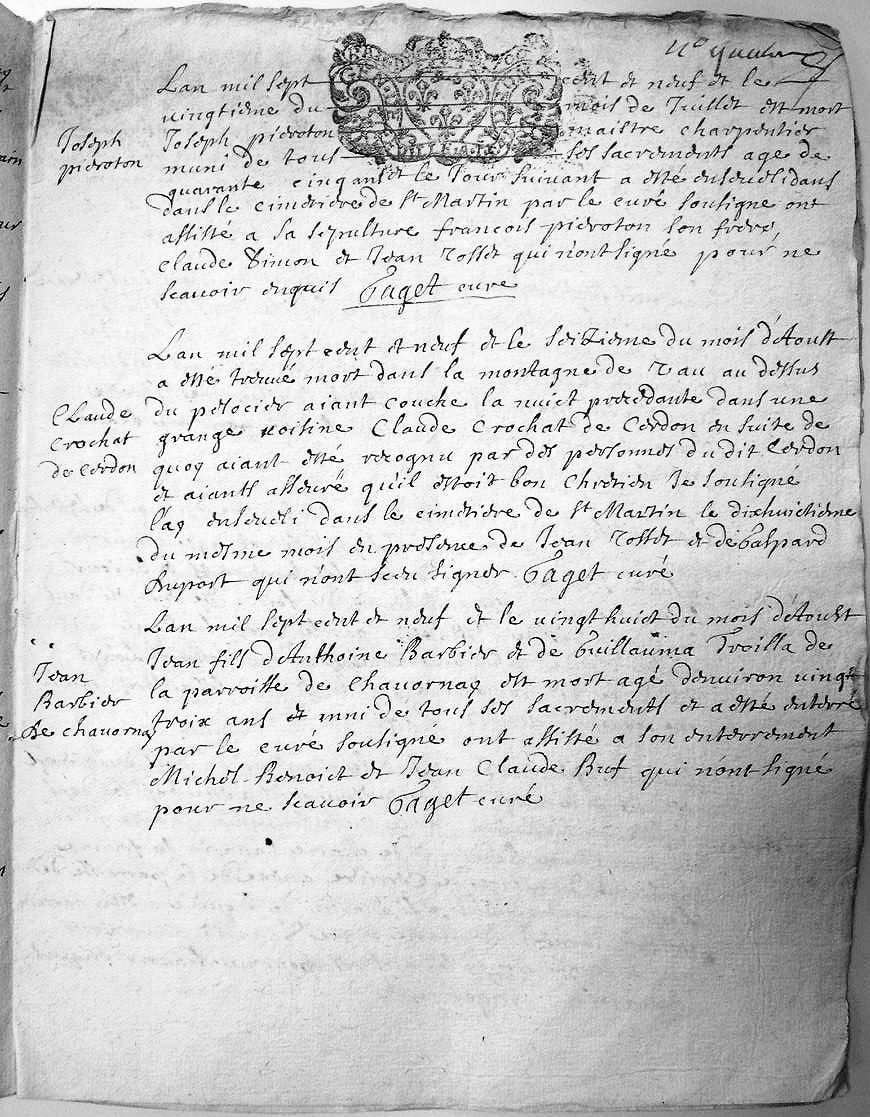 Lan mil sept cent et neuf et le
vingtieme du mois de Juillet est mort
Joseph pieroton
Joseph pieroton maistre charpentier
muni de tous ses sacrements age de
quarante cinq ans et le Jour suivant a esté enseueli dans
dans le cimetiere de St Martin par le curé soussigne ont
assisté a sa sepulture francois pieroton son frere,
Claude Simon et Jean rosset qui n'ont signé pour ne
scauoir enquis Paget curé
Lan mil sept cent et neuf et le seizieme du mois d'Aoust
a esté treuué mort dans la montagne de au dessus
du aiant couche la nuict precedante dans une
Claude
Crochat
de Cerdon
grange voisine Claude Crochat de Cerdon en suite de
quoy aiant esté recognu par des personnes du dit Cerdon
et aiants asseuré qu'il estoit bon Chretien Je soussigné
l'ay enseueli dans le cimetiere de St Martin le dixhuictieme
du mesme mois en presence de Jean rosset et de Gaspard
duport qui n'ont sceu signer Paget curé
Lan mil sept cent et neuf et le vingthuict du mois d'Aoust
Jean
Barbier
de chauornay
Jean fils d'Anthoine Barbier et de Guillauma de
la parroisse de Chauornay est mort agé denuiron vingt
troix ans et muni de tous ses sacrements et a esté enterré
par le curé soussigné ont assisté a son enterrement
Michel Benoict et Jean Claude Buf qui n'ont signé
pour ne scauoir Paget curé